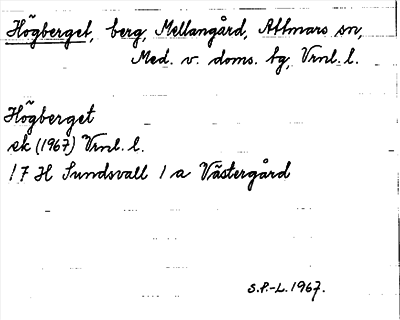 Högberget, berg, Mellangård, Attmars sn,
Med. v. doms. tg, Vrnl. l.
Högberget
ek (1967) Vrnl. l.
17 H Sundsvall 1 a Västergård
S.P.-L. 1967.